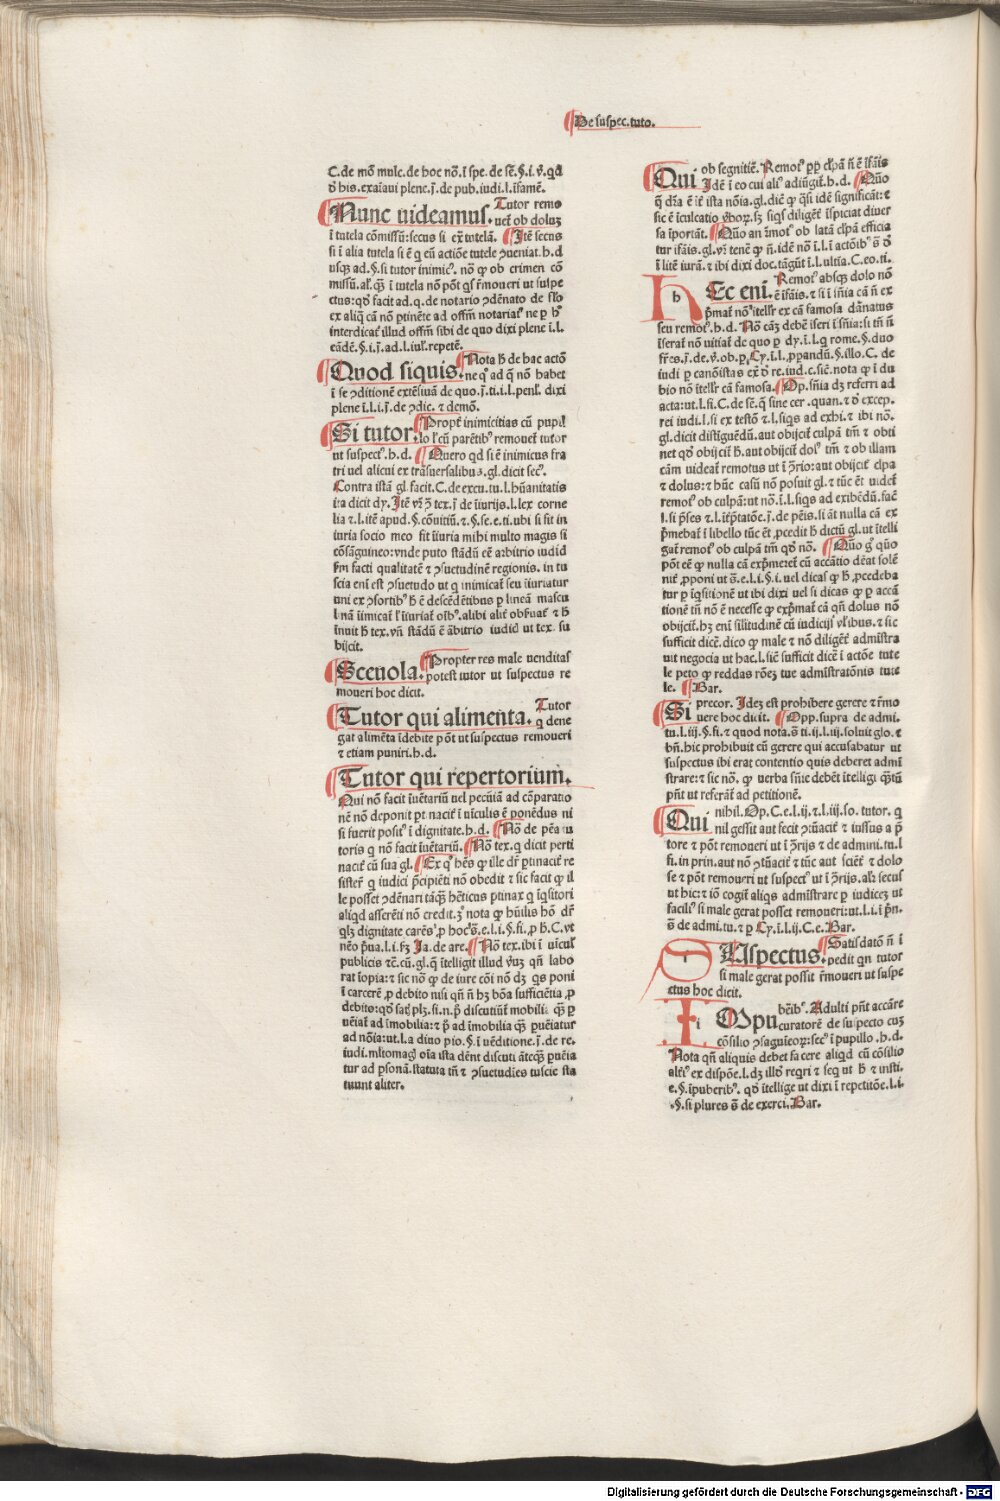 De suspec. tuto.
C. de mō mulc. de hoc nō. ī spe. de sē. §. i. v̄. qđ
đ his. exaīaui plene. j. de pub. iudi. l. īfamē.
Nunc uideamus. Tutor remo
uet̄ ob doluʒ
ī tutela cōmissū: secus si ex̄ tutelā. Itē secus
si ī alia tutela si ē q̄ cū actiōe tutele ꝯueniat. h. d
usqʒ ad. §. si tutor inimicꝰ. nō ꝙ ob crimen cō
missū. al̄. q̄ʒ ī tutela nō pōt q̄s r̄moueri ut suspe
ctus: qđ facit ad. q. de notario ꝯdēnato de fl̄o
ex aliq̄ cā nō ꝑtinēte ad offm̄ notariatꝰ ne ꝑ hͦ
interdicat̄ illud offm̄ sibi de quo dixi plene ī. l.
eādē. §. i. j. ad. l. iul̄. repetē.
Quod siquis. Nota h̄ de hac actō
ne qꝰ ad q̄ nō habet
ī se ꝯditionē extēsiuā de quo. j. ti. i. l. penl̄. dixi
plene ī. l. i. j. de ꝯdic. ⁊ demō.
Si tutor. Propt̄ inimicitias cū pupil
lo l̄ cū parētibꝰ remouet̄ tutor
ut suspectꝰ. h. d. Quero qđ si ē inimicus fra
tri uel alicui ex trāsuersalibus. gl. dicit secꝰ.
Contra istā gl. facit. C. de excu. tu. l. hūanitatis
ita dicit dy. Itē v̄r ꝯ̄ tex. j̄ de īiurijs. l. lex corne
lia ⁊. l. itē apud. §. cōuitiū. ⁊. §. se. e. ti. ubi si fit in
iuria socio meo fit īiuria mihi multo magis si
cōsāguineo: vnde puto stādū eē arbitrio iudicī
s̄m facti qualitatē ⁊ ꝯsuetudinē regionis. in tu
scia enī est ꝯsuetudo ut q̄ inimicat̄ seu īiuriatur
uni ex ꝯsortibꝰ h̄ ē descēdētibus ꝑ lineā mascu
linā īimicat̄ l̄ īiuriat̄ oībꝰ. alibi alit̄ obẜuat̄ ⁊ h̄
īnuit h̄ tex. vn̄ stādū ē ābitrio iudicī ut tex. su
bijcit.
Sceuola. Propter res male uenditas
potest tutor ut suspectus re
moueri hoc dicit.
Tutor qui alimenta. Tutor
q̄ dene
gat alimēta īdebite pōt ut suspectus remoueri
⁊ etiam puniri. h. d.
Tutor qui repertorium.
Qui nō facit īuētariū uel pecūiā ad cōparatio
nē nō deponit ꝑtinacit̄ ī uīculis ē ponēdus ni
si fuerit positꝰ ī dignitate. h. d. Nō de pēa tu
toris q̄ nō facit īuētariū. Nō tex. q̄ dicit perti
nacit̄ cū sua gl. Ex qͦ hēs ꝙ ille dr̄ ꝑtinacit̄ re
sistere q̄ iudici p̄cipiēti nō obedit ⁊ sic facit ꝙ il
le posset ꝯdēnari tāq̄ʒ hēticus ꝑtinax q̄ īqsitori
aliqđ asserēti nō credit. ʒͦ nota ꝙ hūilis hō dr̄
qlʒ dignitate carēsꝰ ꝓ hocꝰ s̄. e. l. i. §. fi. ꝓ h̄. C. vt
nēo p̄ua. l. i. s̄ʒ Ja. de are. Nō tex. ibi ī uīculꝰ
publicis ⁊c̄. cū. gl. q̄ ītelligit illud v̄uʒ qn̄ labo
rat īopia: ⁊ sic nō ꝙ de iure cōi nō dʒ q̄s poni
ī carcerē ꝓ debito nisi qn̄ n̄ hʒ bōa sufficiētia ꝓ
debito: qđ satꝭ plʒ. si. n. p̄ discutiūt̄ mobilia q̄ʒ ꝑ
uēiat̄ ad īmobilia: ⁊ p̄ ad īmobilia q̄ʒ ꝑuēiatur
ad nōia: ut. l. a diuo pio. §. ī uēditione. j. de re.
iudi. mltomagꝭ oīa ista dēnt discuti ātecq̄ʒ ꝑuēia
tur ad ꝑsonā. statuta tn̄ ⁊ ꝯsuetudīes tuscie sta
tuunt aliter.
Qui ob segnitiē. Remotꝰ ꝓp̄ clꝑā n̄ ē īfāis
Idē ī eo cui aliꝰ adiūgit̄. h. d. Q̄uo
q̄ dr̄a ē īt̄ ista nōia. gl. dic̄ ꝙ q̄si idē significāt: ⁊
sic ē īculcatio v̄borꝝ. s̄ʒ siqs diligēt̄ īspiciat diuer
sa īportāt. Q̄uo an īmotꝰ ob latā clꝑā efficia
tur īfāis. gl. v̄r tenē ꝙ n̄. idē nō ī. l. ī actōibꝰ s̄ đ
ī litē iurā. ⁊ ibi dixi doc. tāgūt ī. l. ultīa. C. eo. ti.
h Ec eni. Remotꝰ absqʒ dolo nō
ē īfāis. ⁊ si ī sn̄ia cā n̄ ex
p̄mat̄ nōꝰ ītelłr ex cā famosa dānatus
seu remotꝰ. h. d. Nō cāʒ debē īseri ī sn̄ia: si tn̄ n̄
īserat̄ nō uitiat̄ de quo ꝑ dy. ī. l. q̄ rome. §. duo
fr̄es. j. de. v̄. ob. ꝑ. Cy. ī. l. ꝓꝑandū. §. illo. C. de
iudi ꝑ canōistas ex̄ đ re. iud. c. siē. nota ꝙ ī du
bio nō ītelłr cā famosa. Op. sn̄ia dʒ referri ad
acta: ut. l. fi. C. de sē. q̄ sine cer. quan. ⁊ đ excep.
rei iudi. l. si ex testō ⁊. l. siqs ad exhi. ⁊ ibi nō.
gl. dicit distīguēdū. aut obijcit̄ culpā tm̄ ⁊ obti
net qđ obijcit̄ h̄. aut obijcit̄ dolꝰ tm̄ ⁊ ob illam
cām uideat̄ remotus ut ī ꝯ̄rio: aut obijcit̄ clꝑa
⁊ dolus: ⁊ hūc casū nō posuit gl. ⁊ tūc ēt uidet̄
remotꝰ ob culpā: ut nō. ī. l. siqs ad exibēdū. facē
l. si p̄ses ⁊. l. īt̄p̄tatōe. j. de pēis. si āt nulla cā ex
p̄mebat̄ ī libello tūc ēt ꝓcedit h̄ dictū gl. ut ītelli
gat̄ remotꝰ ob culpā tm̄ qđ nō. Q̄uo gͦ qūo
pōt eē ꝙ nulla cā exp̄meret̄ cū accātio dēat solē
nit̄ ꝓponi ut s̄. e. l. i. §. i. uel dicas ꝙ h̄ ꝓcedeba
tur ꝑ īqsitionē ut ibi dixi uel si dicas ꝙ ꝑ accā
tionē tn̄ nō ē necesse ꝙ exp̄mat̄ cā qn̄ dolus nō
obijcit̄. hʒ enī silitudinē cū iudicijs v̄libus. ⁊ sic
sufficit dicē. dico ꝙ male ⁊ nō diligēt̄ admīstra
uit negocia ut hac. l. siē sufficit dicē ī actōe tute
le peto ꝙ reddas rōeʒ tue admīstratōnis tute
le. Bar.
Si precor. Ideʒ est prohibere gerere ⁊ r̄mo
uere hoc dicit. Opp. supra de admi.
tu. l. iij. §. fi. ⁊ quod nota. s̄ ti. ij. l. iij. soluit glo. ⁊
bn̄. hic prohibuit cū gerere qui accusabatur ut
suspectus ibi erat contentio quis deberet admī
strare: ⁊ sic nō. ꝙ uerba sn̄ie debēt ītelligi q̄ʒtū
pn̄t ut referāt̄ ad petitionē.
Qui nihil. Op. C. e. l. ij. ⁊ l. iij. so. tutor. q̄
nil gessit aut fecit ꝯtūacit̄ ⁊ iussus a p̄
tore ⁊ pōt remoueri ut ī ꝯ̄rijs ⁊ de admini. tu. l
fi. in prin. aut nō ꝯtūacit̄ ⁊ tūc aut sciēt̄ ⁊ dolo
se ⁊ pōt remoueri ut suspectꝰ ut ī ꝯ̄rijs. alʒ secus
ut hic: ⁊ iō cogit̄ aliqs admīstrare ꝑ iudiceʒ ut
faciliꝰ si male gerat posset remoueri: ut. l. i. ī prī.
s̄ de admi. tu. ⁊ ꝑ Cy. ī. l. ij. C. e. Bar.
S USpectus. Satisdatō n̄ ī
pedit qn̄ tutor
si male gerat possit r̄moueri ut suspe
ctus hoc dicit.
I i MPu bēibꝰ. Adulti pn̄t accāre
curatorē de suspecto cuʒ
cōsilio ꝯsaguīeoꝝ: secꝰ ī pupillo. h. d.
Nota qn̄ aliquis debet facere aliqđ cū cōsilio
altīꝰ ex dispōe. l. dʒ illđ reqri ⁊ seq̄ ut h̄ ⁊ insti.
e. §. īpuberibꝰ. qđ ītellige ut dixi ī repetitiōe. l. i.
§. si plures s̄ de exerci. Bar.
Digitalisierung gefördert durch die Deutsche Forschungsgemeinschaft - DFG